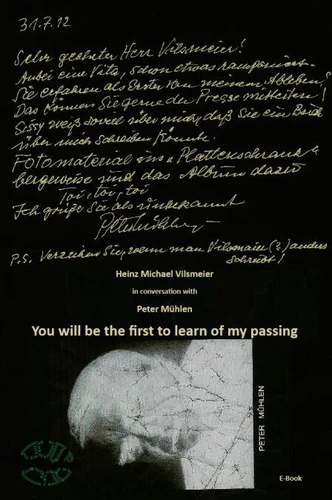 31.7.12
Sehr geehrter Herr Vilsmeier!
Anbei eine Vita, schon etwas
Sie erfahren als Erster von meinem Ableben!
Das können Sie gerne der Presse mitteilen!
Sissy weiß soviel über mich, daß Sie ein Buch
über mich schreiben könnte.
Fotomaterial im Plattenschrank
bergeweise und das Album dazu
Toi, toi, toi
Ich grüße Sie als
Peter Mühlen
P.S. Verzeihen Sie, wenn man Vilsmeier (?) anders
schreibt!
Heinz Michael Vilsmeier
in conversation with
Peter Mühlen
You will be the first to learn of my passing
PETER MÜHLEN
E-Book